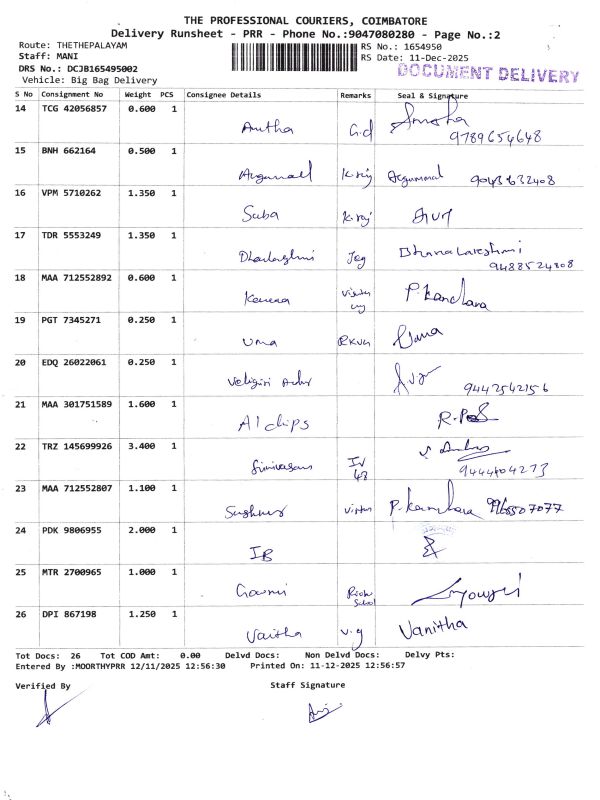 THE PROFESSIONAL COURIERS, COIMBATORE
Delivery Runsheet - PRR - Phone No.:9047080280 - Page No.:2
Route: THETHEPALAYAM
RS No.: 1654950
Staff: MANI
RS Date: 11-Dec-2025
DRS No.: DCJB165495002
DOCUMENT DELIVERY
Vehicle: Big Bag Delivery
S No Consignment No Weight PCS Consignee Details Remarks Seal & Signature
14 TCG 42056857 0.600 1 G.d
9789654648
15 BNH 662164 0.500 1 K.raj
9043632408
16 VPM 5710262 1.350 1 Suba K.raj
17 TDR 5553249 1.350 1 Dhanalakshmi
9488524808
18 MAA 712552892 0.600 1 P.Kanchana
19 PGT 7345271 0.250 1 Uma Uma
20 EDQ 26022061 0.250 1
9442542156
21 MAA 301751589 1.600 1 A1 chips
22 TRZ 145699926 3.400 1 Srinivasan
9444404273
23 MAA 712552807 1.100 1 P.Kanchana 9965507077
24 PDK 9806955 2.000 1 IB
25 MTR 2700965 1.000 1 Gowri Gowri
26 DPI 867198 1.250 1 V.g Vanitha
Tot Docs: 26 Tot COD Amt: 0.00 Delvd Docs: Non Delvd Docs: Delvy Pts:
Entered By :MOORTHYPRR 12/11/2025 12:56:30 Printed On: 11-12-2025 12:56:57
Verified By Staff Signature